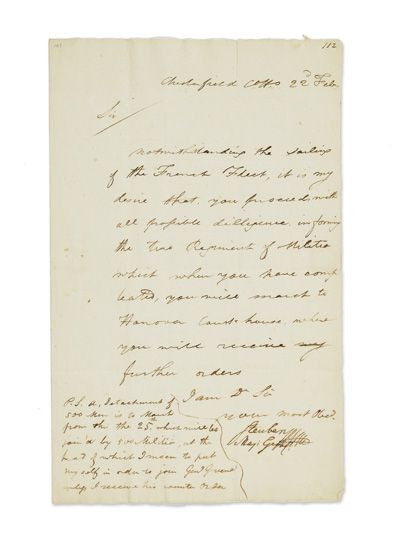 112
Chesterfield CtHo 22d Feb.
Sir
notwithstanding the sailing
of the French Fleet, it is my
desire that, you proceed with
all possible dilligence, in forming
the two Regiment of Militia
which when you have comp
leated, you will march to
Hanover Court-house, where
you will receive my
further orders
I am Dr Sir
your most Obed.
Steuben
Maj: Genl
P.S. a, detachment of
500 Men is to March
from the 25, which will be
join'd by 500 Militia, at the
head of which I mean to put
myself in order to join Genl Green
unless I receive his counter Order